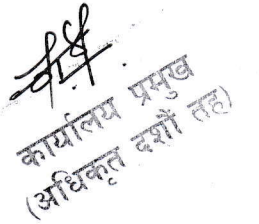 कार्यालय प्रमुख
(अधिकृत दशौं तह)